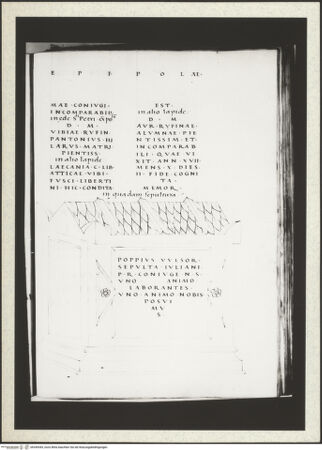 E P I P O L AE
MAE CONIVGI
INCOMPARABILI
in ede S. Petri
D M
VIBIAE RVFIN
PANTONIVS HI
LARVS MATRI
PIENTISS
in alio lapide
LAECANIA C LIB
ATTICAE VIBI
FVSCI LIBERTI
NI HIC CONDITA
EST
in alio lapide
D M
AVR RVFINAE
ALVMNAE PIE
NTISSIM ET
INCOMPARAB
ILI QVAE VI
XIT ANN XVII
MENS X DIES
II FIDE COGNI
TA
MEMOR
in quadam sepultura
POPPIVS VVLSOR
SEPVLTA IVLIANI
P R CONIVGE N S
VNO ANIMO
LABORANTES
VNO ANIMO NOBIS
POSVI
MV
S